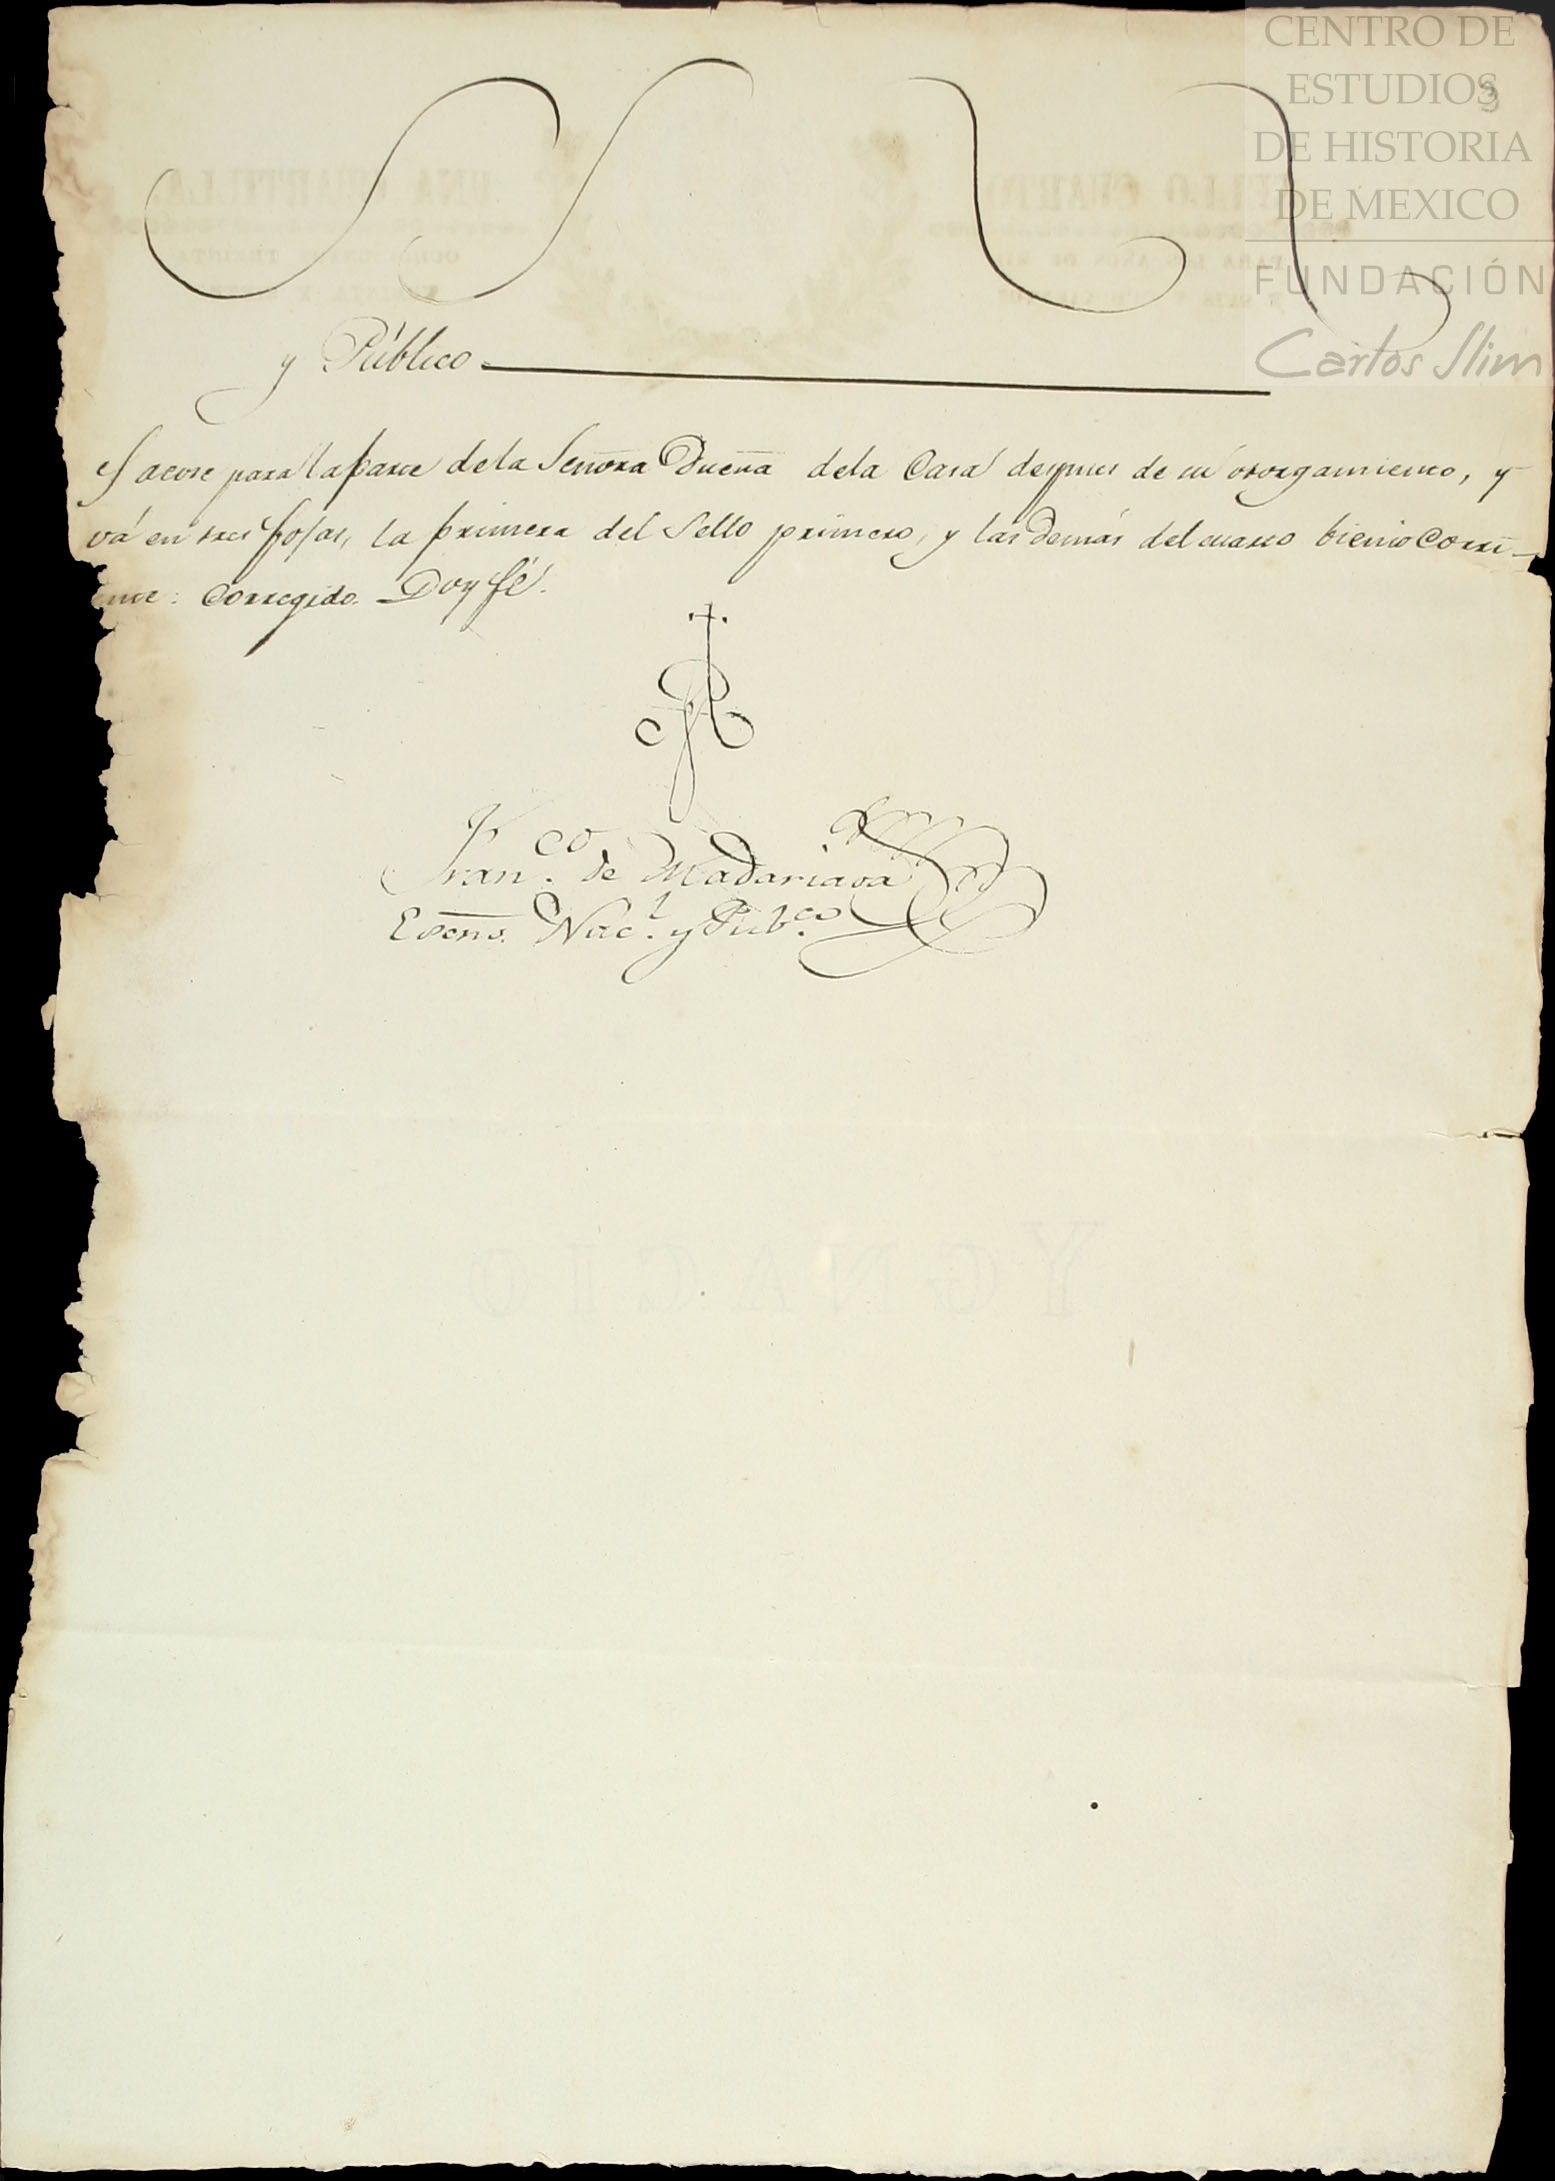 CENTRO DE
ESTUDIOS
DE HISTORIA
DE MEXICO
FUNDACIÓN
Carlos Slim
3
y Público
Sacose para la parte de la Señora Dueña de la Casa despues de su otorgamiento, y
vá en tres fojas, la primera del Sello primero, y las demás del cuarto bienio Corri-
ente: Corregido. Doy fé.
Fran.co de Madariaga
Escno. Nac.l y Pub.co
YGNACIO